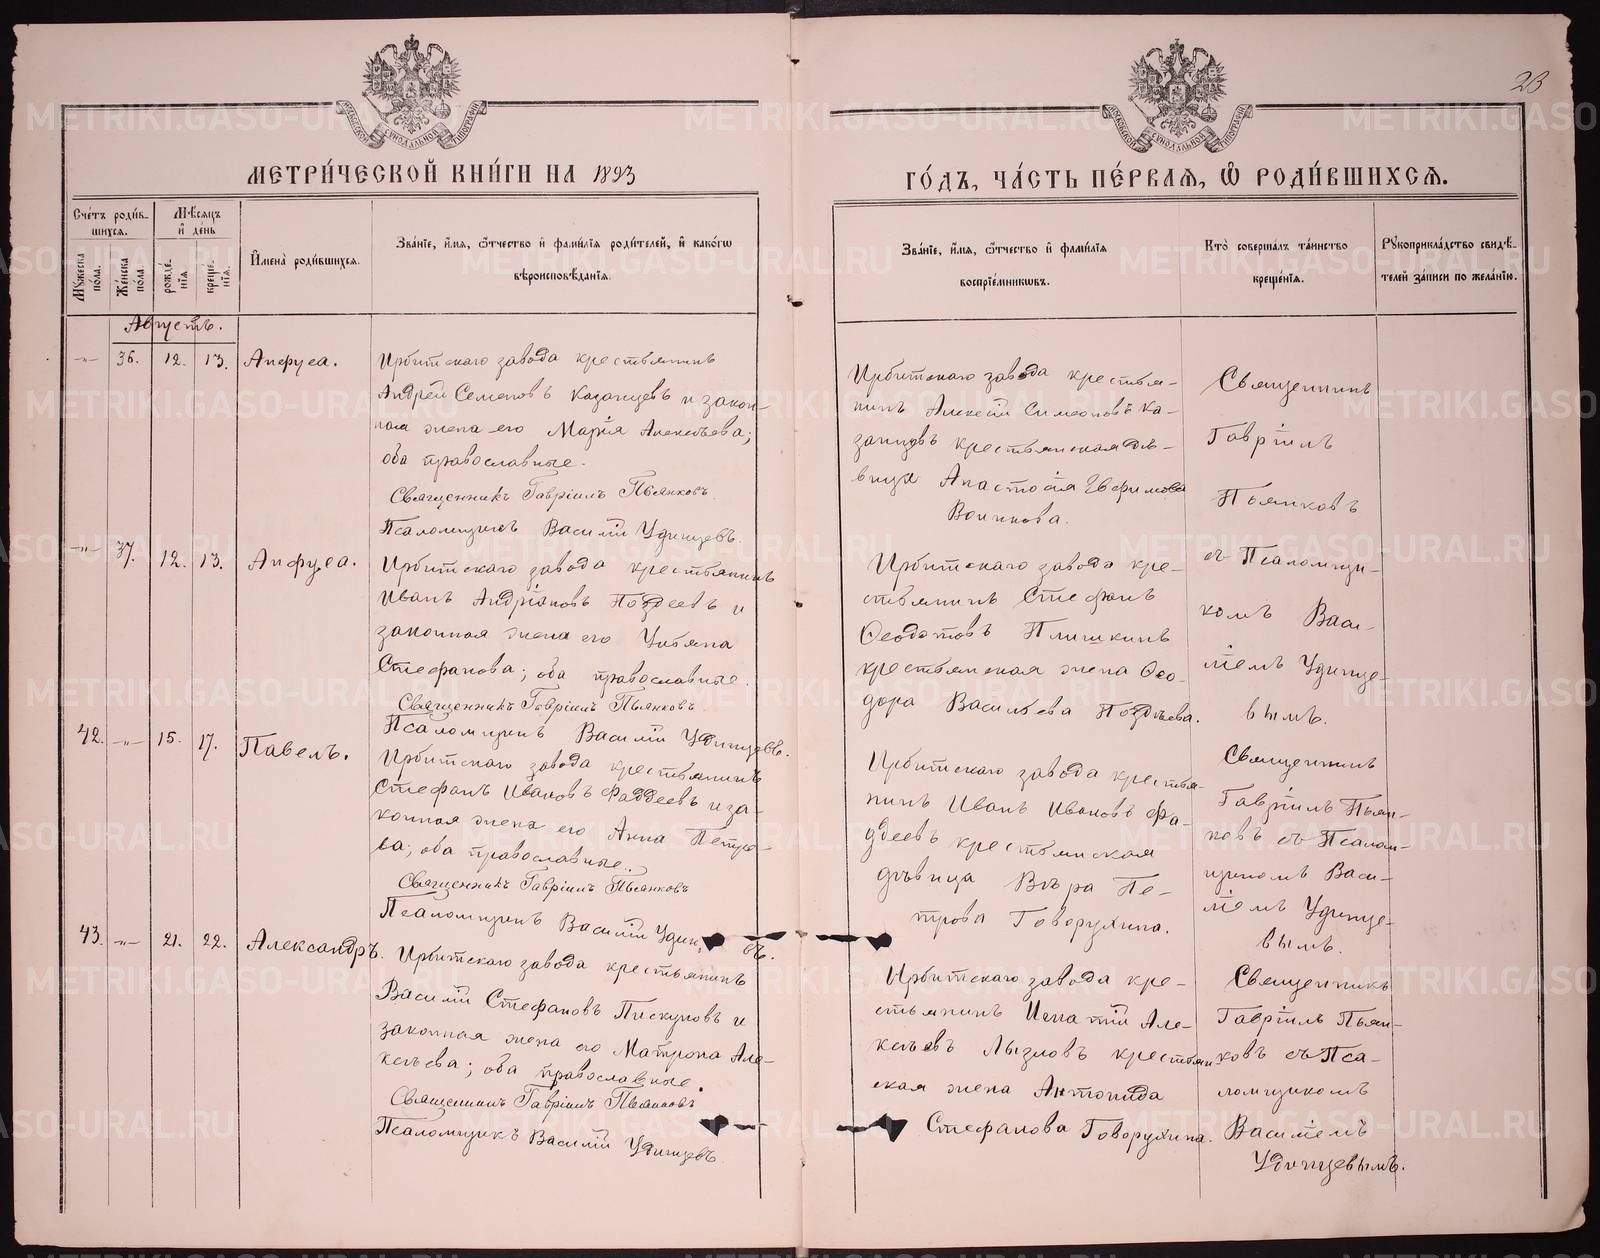 23
МЕТРИ́ЧЕСКОЙ КНИ́ГИ НА 1893
ГО́ДЪ, ЧА́СТЬ ПЕ́РВАЯ, Ѡ҆ РОДИ́ВШИХСЯ.
Сче́тъ роди́в-
шихся.
Мѣ́сяцъ
и҆ де́нь
И҆мена̀ роди́вшихся.
Зва́нїе, и҆́мя, ѻ҆́тчество и҆ фами́лїя роди́телей, и҆ како́гѡ
вѣроисповѣ́данїя.
Зва́нїе, и҆́мя, ѻ҆́тчество и҆ фами́лїя
воспрїе́мникѡвъ.
Кто̀ соверша́лъ та́инство
креще́нїя.
Рꙋкоприкла́дство свидѣ́-
телей за́писи по жела́нїю.
Мꙋ́жеска
по́ла.
Же́нска
по́ла.
рожде́-
нїя
креще́-
нїя.
Августъ.
-„- 36. 12. 13. Анфуса.
Ирбитскаго завода крестьянинъ
Андрей Семеновъ Казанцевъ и закон-
ная жена его Марiя Алексѣева;
оба православные.
Священникъ Гаврiилъ Пьянковъ.
Псаломщикъ Василiй Удинцевъ.
Ирбитскаго завода крестья-
нинъ Алексiй Симеоновъ Ка-
занцевъ крестьянская дѣ-
вица Анастасiя Евфимова
Воинкова.
Священникъ
Гаврiилъ
Пьянковъ
съ Псаломщи-
комъ Васи-
лiемъ Удинце-
вымъ.
-„- 37. 12. 13. Анфуса.
Ирбитскаго завода крестьянинъ
Иванъ Андрiановъ Поздеевъ и
законная жена его Улiяна
Стефанова; оба православные.
Священникъ Гаврiилъ Пьянковъ.
Псаломщикъ Василiй Удинцевъ.
Ирбитскаго завода кре-
стьянинъ Стефанъ
Ѳеодотовъ Плишкинъ
крестьянская жена Ѳео-
дора Васильева Поздѣева.
42. -„- 15. 17. Павелъ.
Ирбитскаго завода крестьянинъ
Стефанъ Ивановъ Фаддеевъ и за-
конная жена его Анна Петро-
ва; оба православные.
Священникъ Гаврiилъ Пьянковъ
Псаломщикъ Василiй Удин въ.
Ирбитскаго завода крестья-
нинъ Иванъ Ивановъ Фа-
ддеевъ крестьянская
дѣвица Вѣра Пе-
трова Говорухина.
Священникъ
Гаврiилъ Пьян-
ковъ съ Псалом-
щикомъ Васи-
лiемъ Удинце-
вымъ.
43. -„- 21. 22. Александръ.
Ирбитскаго завода крестьянинъ
Василiй Стефановъ Пискуновъ и
законная жена его Матрона Але-
ксѣева; оба православные.
Священникъ Гаврiилъ Пьянковъ
Псаломщикъ Василiй Удинцевъ.
Ирбитскаго завода кре-
стьянинъ Игнатiй Але-
ксѣевъ Лызловъ крестьян-
ская жена Антонида
Стефанова Говорухина.
Священникъ
Гаврiилъ Пьян-
ковъ съ Пса-
ломщикомъ
Василiемъ
Удинцевымъ.